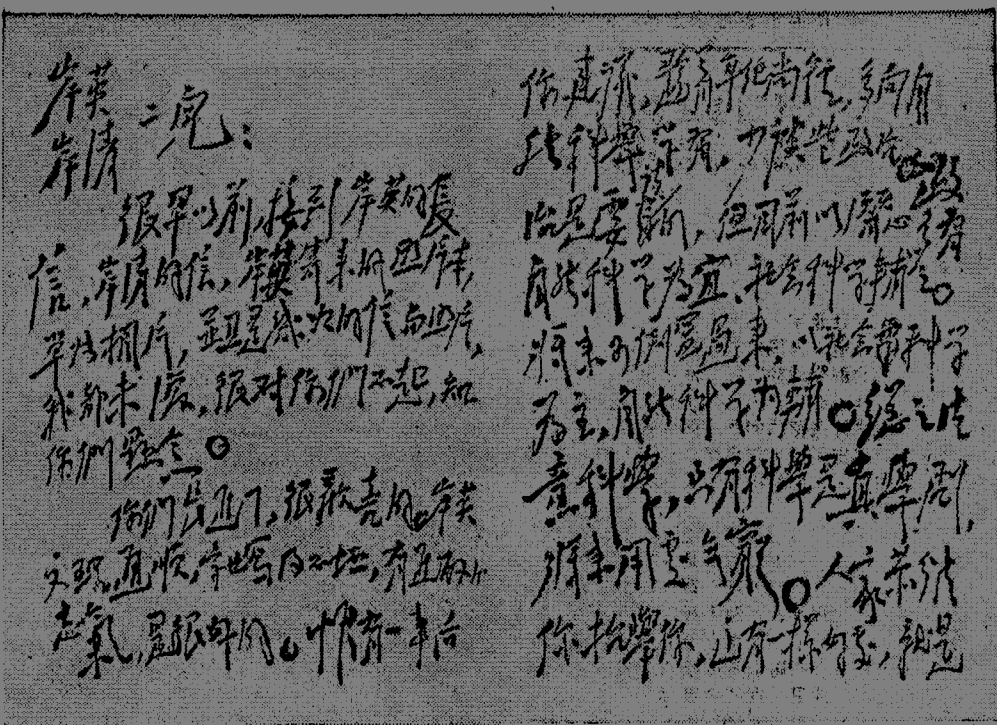 岸英
岸青 二兒：
很早以前，接到岸英的長
信，岸青的信，岸英寄来的照片本，
单张相片，並且是幾次的信与照片，
我都未復，很对你们不起，知
你们懸念。
你们长进了，很歡喜的。岸英
文理通顺，字也寫得不坏，有进取的
志氣，是很好的。惟有一事向
你们建議，趁着年纪尚轻，多向自
然科學学習，少談些政治。政
治是要談的，但目前以潛心多習
自然科学为宜，社会科学辅之。
将来可倒置過来，以社会科学
为主，自然科学为辅。總之注
意科學，只有科學是真學問，
将来用處无窮。人家恭维
你抬舉你，这有一樣好處，就是